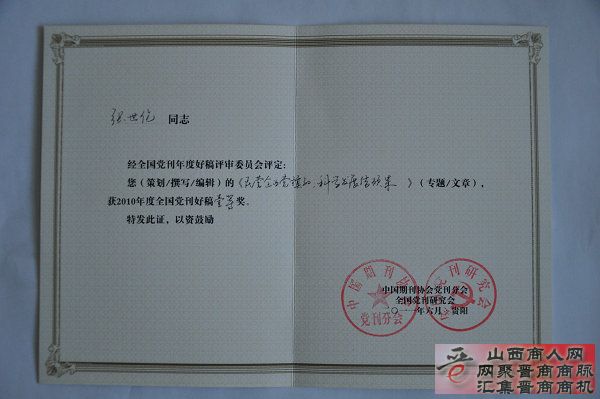 张世伦 同志
经全国党刊年度好稿评审委员会评定：
您（策划/撰写/编辑）的《 科学发展结硕果 》（专题/文章），
获2010年度全国党刊好稿壹等奖。
特发此证，以资鼓励
中国期刊协会党刊分会
全国党刊研究会
二〇一一年六月 贵阳
党刊分会
山西商人网
网聚晋商商脉
汇集晋商商机